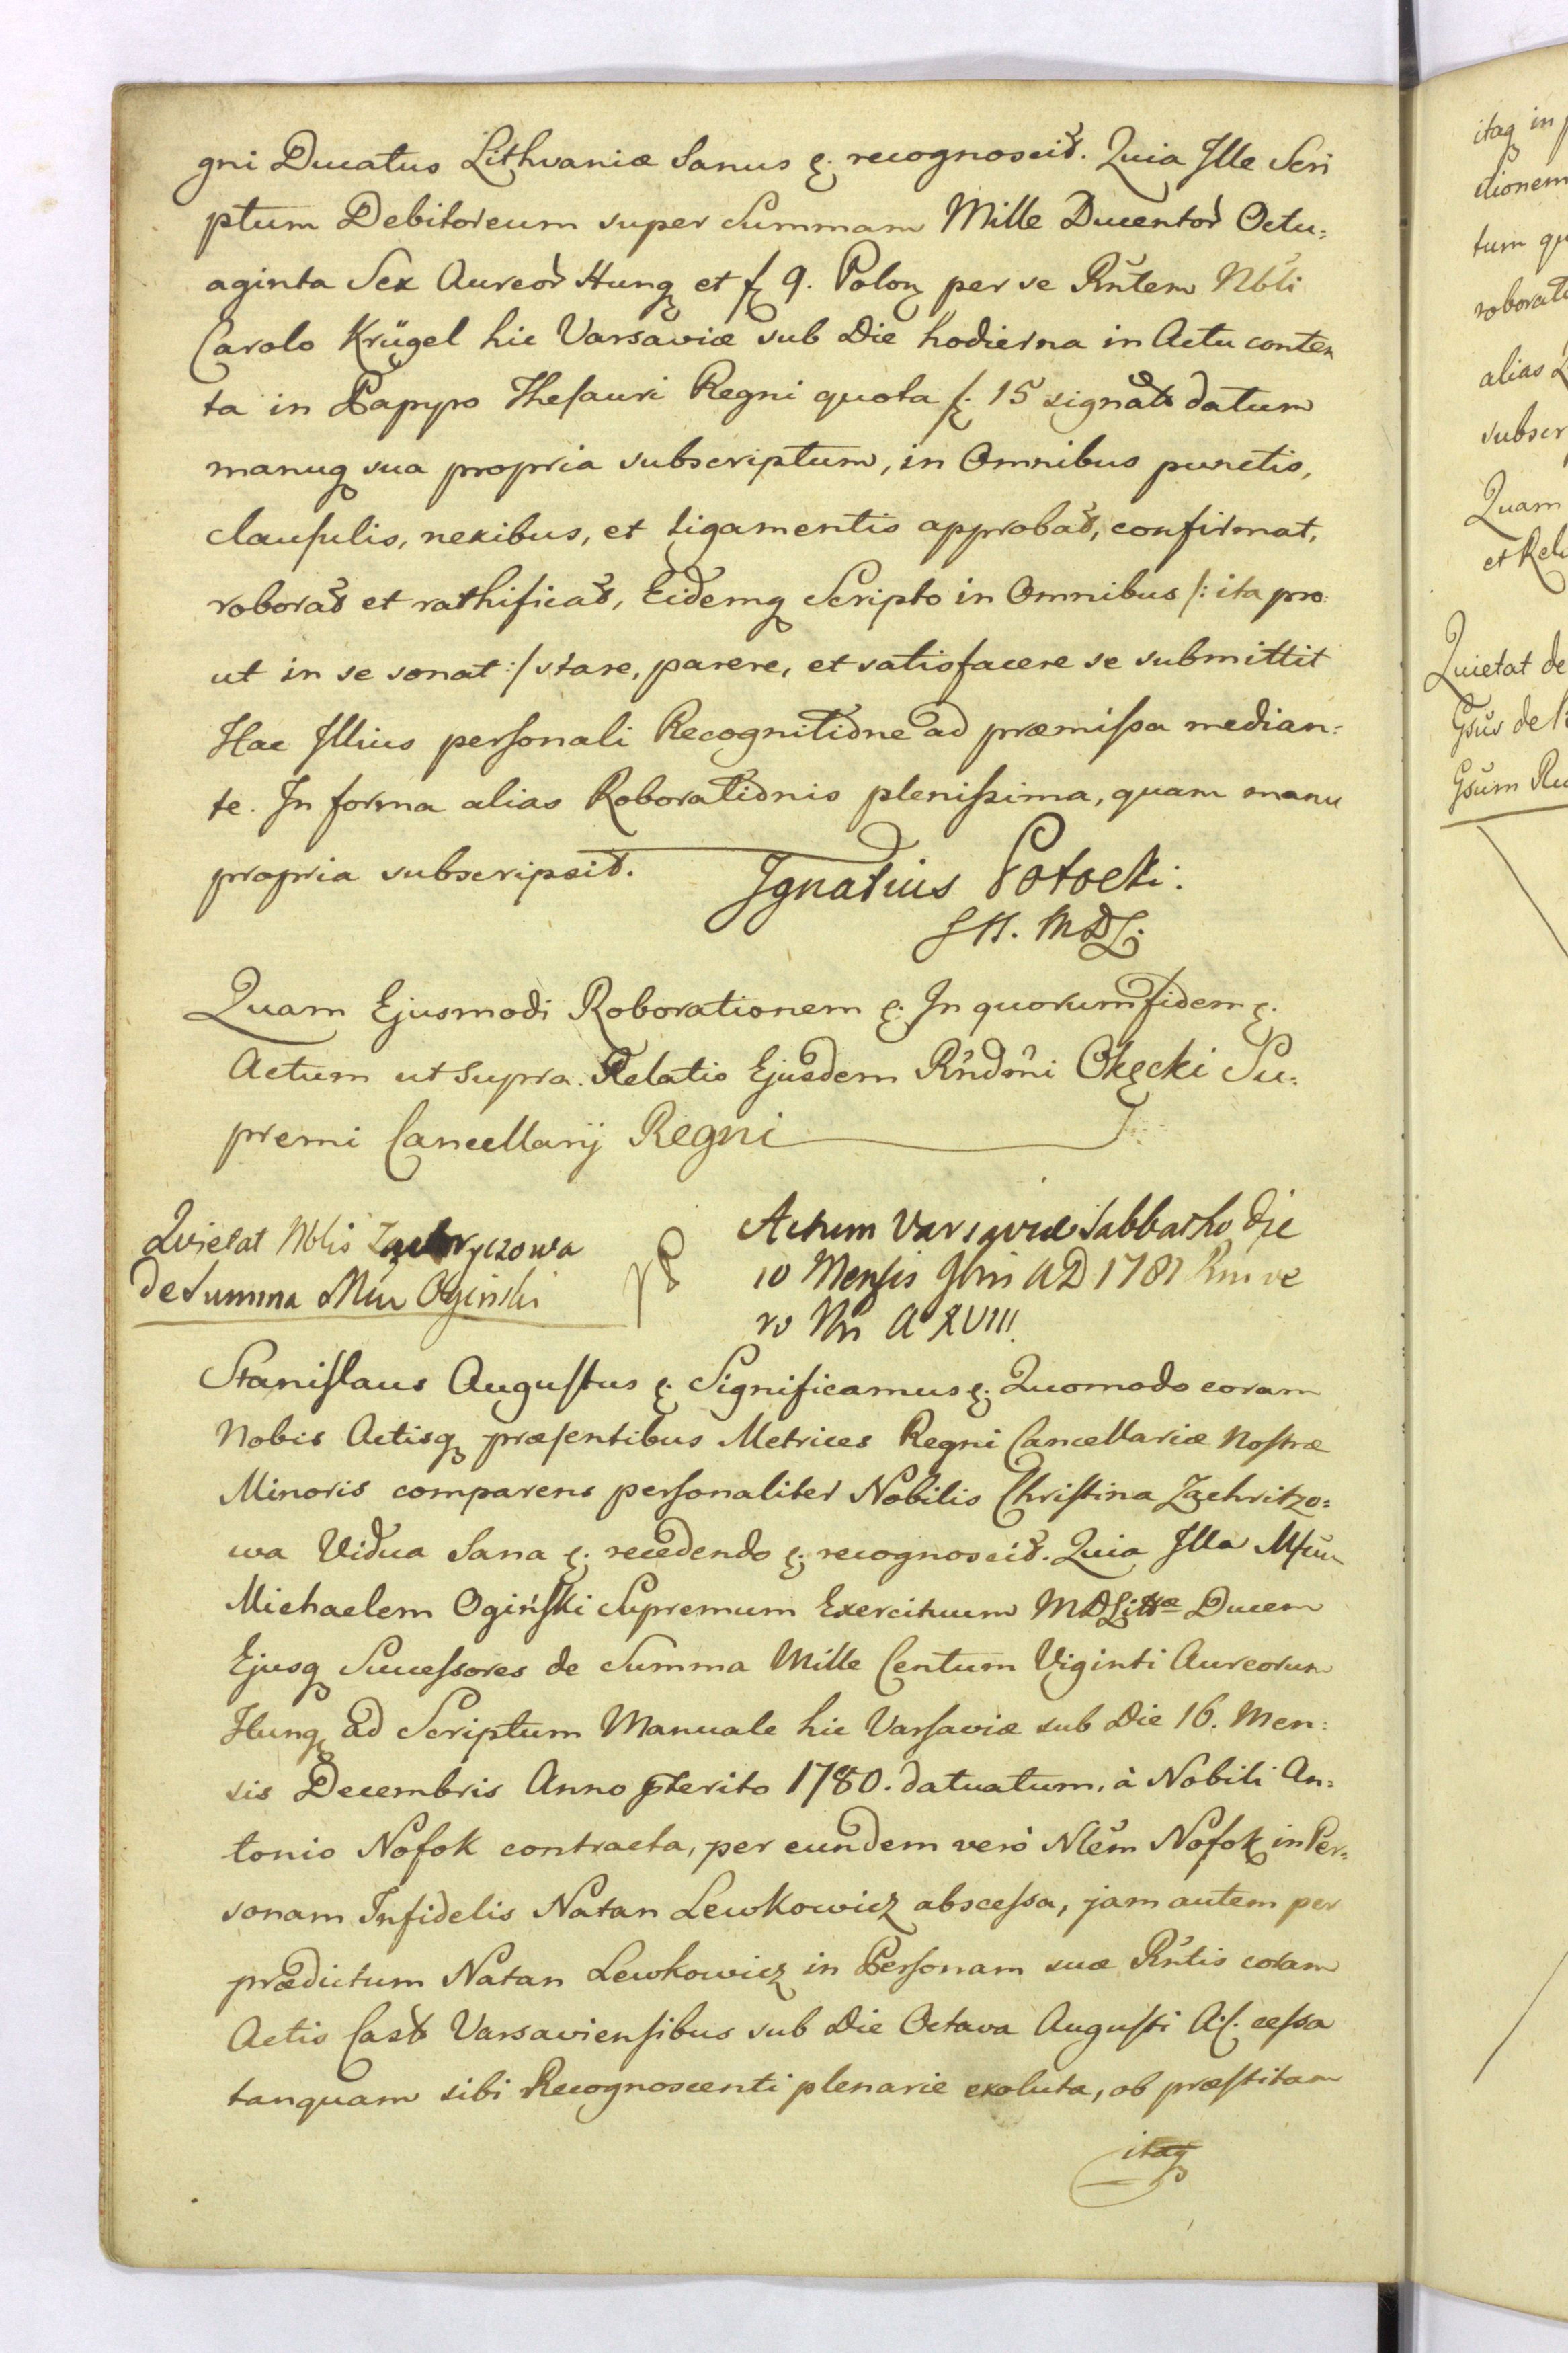 gni Ducatus Lithvaniæ Sanus ę. recognoscit. Quia Ille Scri
ptum Debitoreum super Summam Mille Ducentor Octu=
aginta Sex Aureor Hung et f 9. Polon per se Rntem Nbli
Carolo Krügel hic Varsaviæ sub Die hodierna in Actu conten
ta in Papyro Thesauri Regni quota f. 15 signato datum
manuq sua propria subscriptum, in Omnibus punctis,
clausulis, nexibus, et ligamentis approbat, confirmat,
roborat et rathificat, Eidemq Scripto in Omnibus /: ita pro=
ut in se sonat :/ stare, parere, et satisfacere se submittit
Hac Illius personali Recognitione ad præmissa median=
te. In forma alias Roborationis plenissima, quam manu
propria subscripsit. Ignatius Potocki.
MDL.
Quam Ejusmodi Roborationem ę. In quorum fidem ę.
Actum ut Supra. Relatio Ejusdem Rndmi Okęcki Su=
premi Cancellarij Regni
Quietat Nblis
de Summa Oginski
Actum Varsaviæ Sabbatho die
10 Mensis AD 1781 Rni ve
ro Nri A XVIII.
Stanislaus Augustus ę. Significamus ę. Quomodo coram
Nobis Actisq præsentibus Metrices Regni Cancellariæ Nostræ
Minoris comparens personaliter Nobilis Christina Zachritzo=
wa Vidua Sana ę. recedendo ę. recognoscit. Quia Illa Mfcum
Michaelem Ogiński Supremum Exercituum MDLittæ Ducem
Ejusq Successores de Summa Mille Centum Viginti Aureorum
Hung ad Scriptum Manuale hic Varsaviæ sub Die 16. Men=
sis Decembris Anno pterito 1780. datuatum, à Nobili An=
tonio Nofok contracta, per eundem verò Nlem Nofok in Per=
sonam Infidelis Natan Lewkowicz abscessa, jam autem per
prædictum Natan Lewkowicz in Personam suæ Rntis coram
Actis Cast Varsaviensibus sub Die Octava Augusti cessa
tanquam sibi Recognoscenti plenarie exoluta, ob præstitam
itaq
itaq in
ctionem
tum qu
roborat
alias
subscr
Quam
et Rel
Quietat de
Gsus de
Gsum